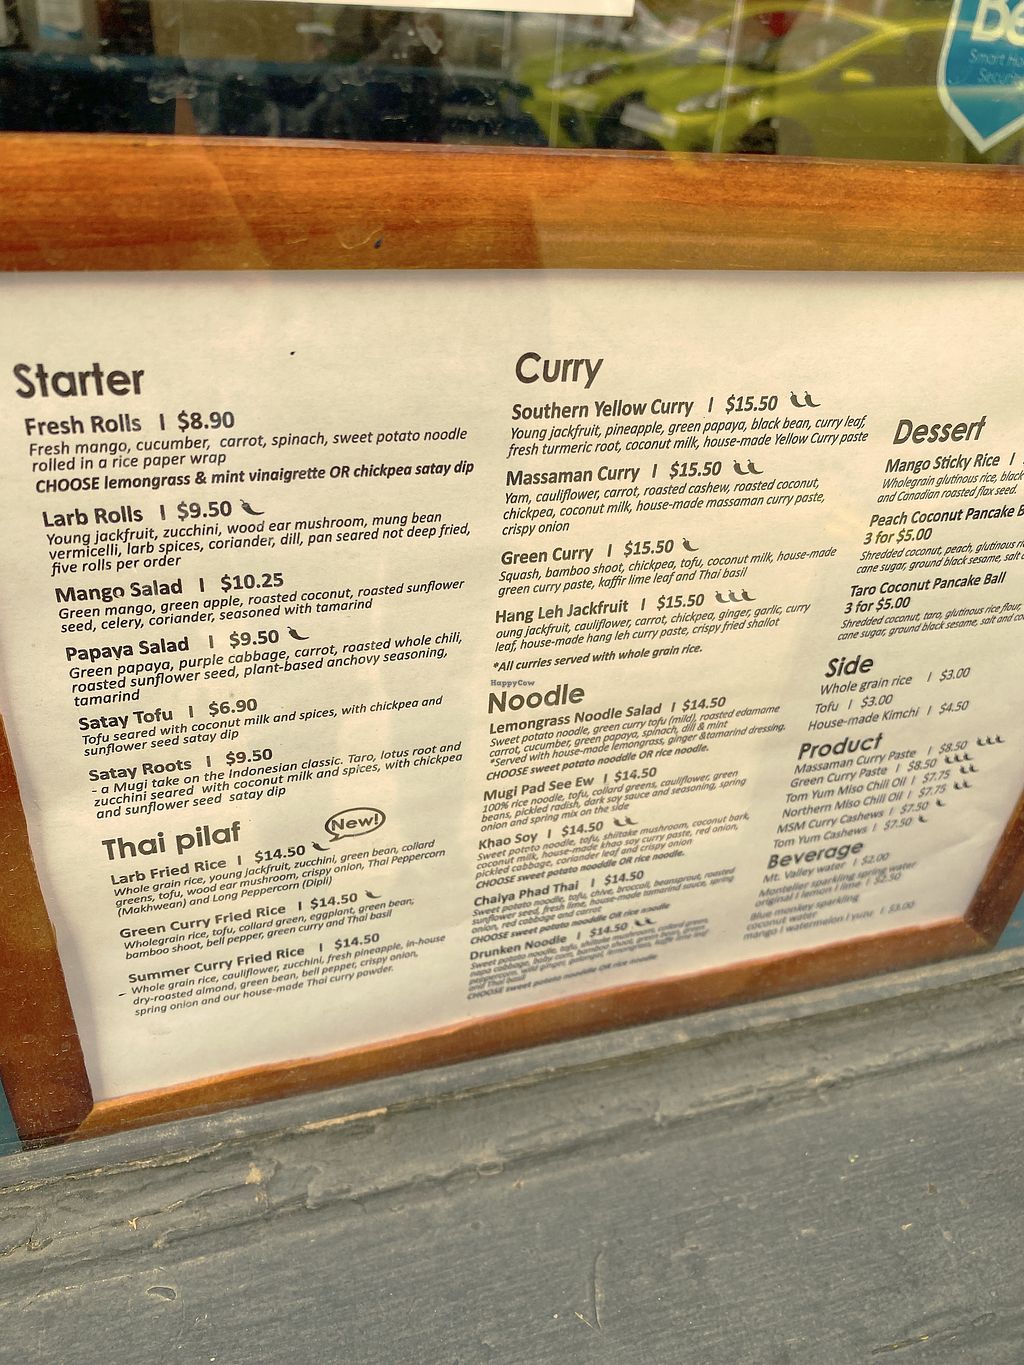 Be
Smart Ho
Starter
Fresh Rolls I $8.90
Fresh mango, cucumber, carrot, spinach, sweet potato noodle
rolled in a rice paper wrap
CHOOSE lemongrass & mint vinaigrette OR chickpea satay dip
Larb Rolls I $9.50
Young jackfruit, zucchini, wood ear mushroom, mung bean
vermicelli, larb spices, coriander, dill, pan seared not deep fried,
five rolls per order
Mango Salad I $10.25
Green mango, green apple, roasted coconut, roasted sunflower
seed, celery, coriander, seasoned with tamarind
Papaya Salad I $9.50
Green papaya, purple cabbage, carrot, roasted whole chili,
roasted sunflower seed, plant-based anchovy seasoning,
tamarind
Satay Tofu I $6.90
Tofu seared with coconut milk and spices, with chickpea and
sunflower seed satay dip
Satay Roots I $9.50
- a Mugi take on the Indonesian classic. Taro, lotus root and
zucchini seared with coconut milk and spices, with chickpea
and sunflower seed satay dip
Thai pilaf New!
Larb Fried Rice I $14.50
Whole grain rice, young jackfruit, zucchini, green bean, collard
greens, tofu, wood ear mushroom, crispy onion, Thai Peppercorn
(Makhwean) and Long Peppercorn (Dipli)
Green Curry Fried Rice I $14.50
Wholegrain rice, tofu, collard green, eggplant, green bean,
bamboo shoot, bell pepper, green curry and Thai basil
Summer Curry Fried Rice I $14.50
- Whole grain rice, cauliflower, zucchini, fresh pineapple, in-house
dry-roasted almond, green bean, bell pepper, crispy onion,
spring onion and our house-made Thai curry powder.
Curry
Southern Yellow Curry I $15.50
Young jackfruit, pineapple, green papaya, black bean, curry leaf,
fresh turmeric root, coconut milk, house-made Yellow Curry paste
Massaman Curry I $15.50
Yam, cauliflower, carrot, roasted cashew, roasted coconut,
chickpea, coconut milk, house-made massaman curry paste,
crispy onion
Green Curry I $15.50
Squash, bamboo shoot, chickpea, tofu, coconut milk, house-made
green curry paste, kaffir lime leaf and Thai basil
Hang Leh Jackfruit I $15.50
oung jackfruit, cauliflower, carrot, chickpea, ginger, garlic, curry
leaf, house-made hang leh curry paste, crispy fried shallot
*All curries served with whole grain rice.
HappyCow
Noodle
Lemongrass Noodle Salad I $14.50
Sweet potato noodle, green curry tofu (mild), roasted edamame
carrot, cucumber, green papaya, spinach, dill & mint
*Served with house-made lemongrass, ginger &tamarind dressing.
CHOOSE sweet potato noodle OR rice noodle.
Mugi Pad See Ew I $14.50
100% rice noodle, tofu, collard greens, cauliflower, green
beans, pickled radish, dark soy sauce and seasoning, spring
onion and spring mix on the side
Khao Soy I $14.50
Sweet potato noodle, tofu, shiitake mushroom, coconut bark,
coconut milk, house-made khao soy curry paste, red onion,
pickled cabbage, coriander leaf and crispy onion
CHOOSE sweet potato nooddle OR rice noodle.
Chaiya Phad Thai I $14.50
Sweet potato noodle, tofu, chive, broccoli, beansprout, roasted
sunflower seed, fresh lime, house-made tamarind sauce, spring
onion, red cabbage and carrot
CHOOSE sweet potato nooddle OR rice noodle
Drunken Noodle I $14.50
Sweet potato noodle, tofu, shiitake mushroom, collard green,
napa cabbage, baby corn, bamboo shoot, green bean, green
and Thai basil
CHOOSE sweet potato nooddle OR rice noodle
Dessert
Mango Sticky Rice I
Wholegrain glutinous rice, black
and Canadian roasted flax seed.
Peach Coconut Pancake B
3 for $5.00
Shredded coconut, peach, glutinous ri
cane sugar, ground black sesame, salt
Taro Coconut Pancake Ball
3 for $5.00
Shredded coconut, taro, glutinous rice flour,
cane sugar, ground black sesame, salt and co
Side
Whole grain rice I $3.00
Tofu I $3.00
House-made Kimchi I $4.50
Product
Massaman Curry Paste I $8.50
Green Curry Paste I $8.50
Tom Yum Miso Chili Oil I $7.75
Northern Miso Chili Oil I $7.75
MSM Curry Cashews I $7.50
Tom Yum Cashews I $7.50
Beverage
Mt. Valley water I $2.00
Montellier sparkling spring water
original I lemon I lime I $2.50
Blue monkey sparkling
coconut water
mango I watermelon I yuzu I $3.00